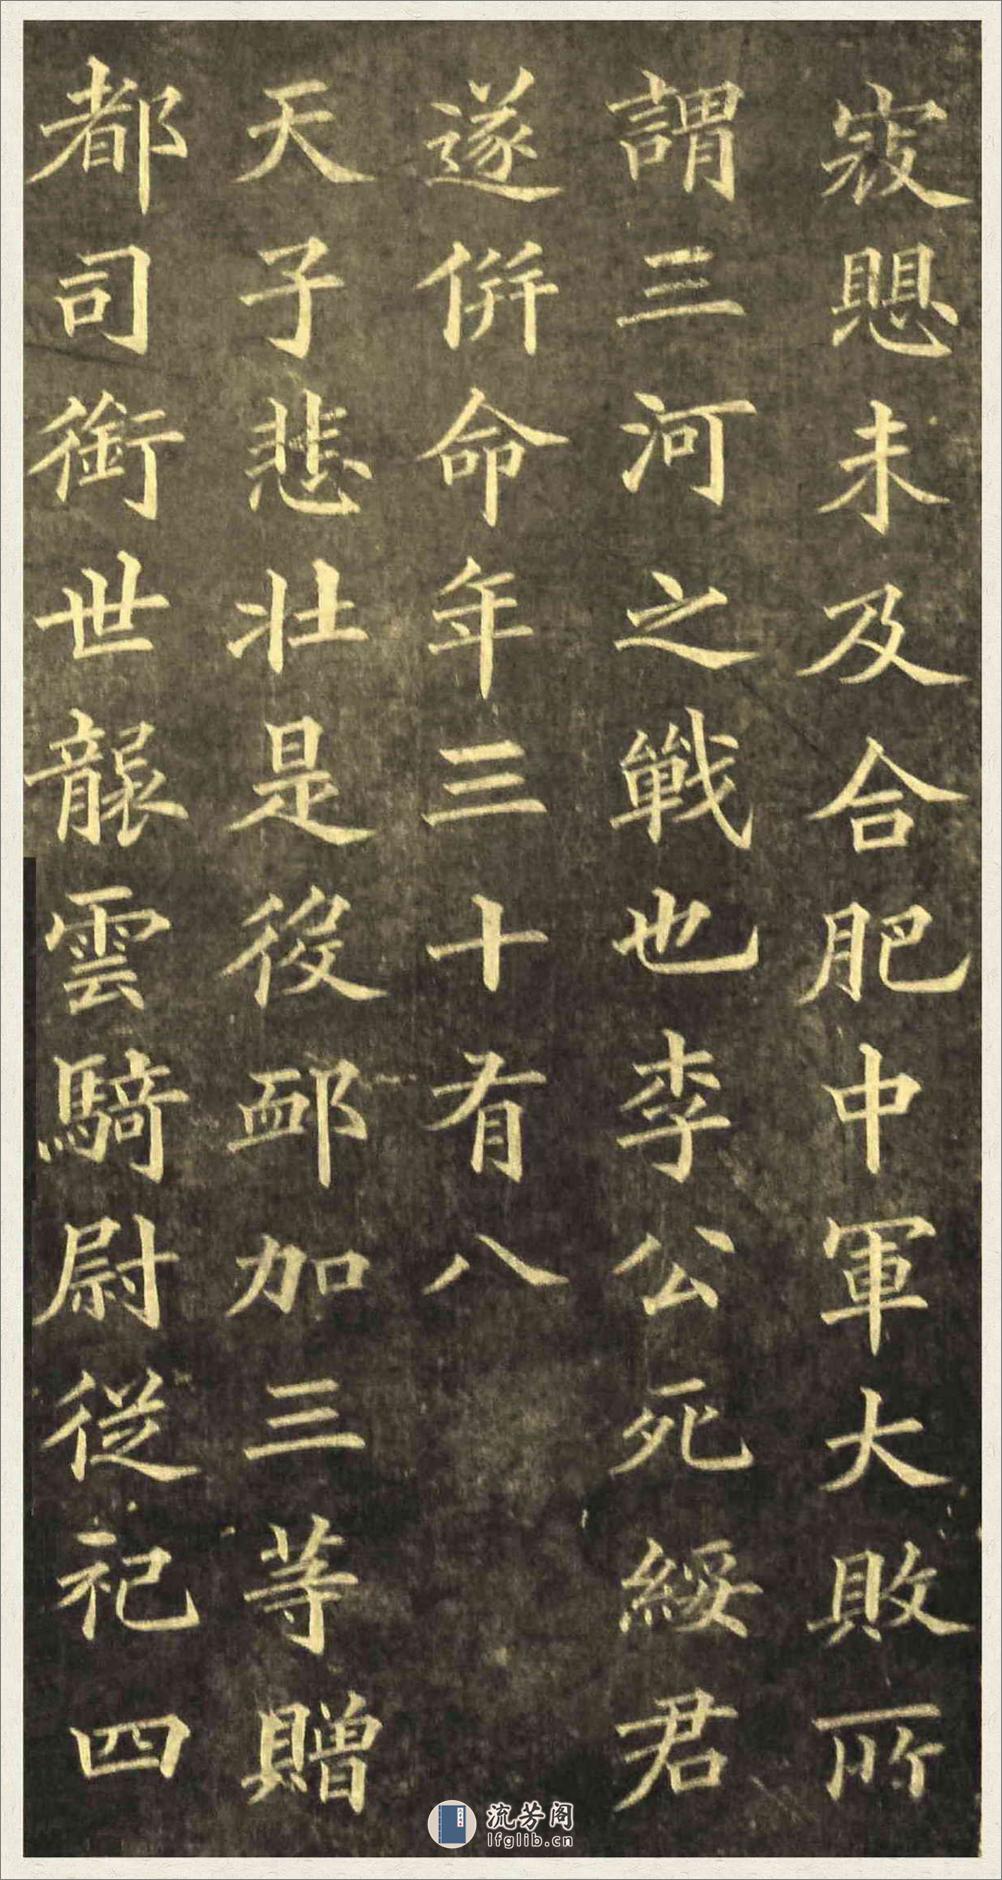 寇愳未及合肥中軍大敗所
謂三河之戰也李公死綏君
遂併命年三十有八
天子悲壯是役卹加三等贈
都司銜世襲雲騎尉從祀四
流芳阁
lfglib.cn